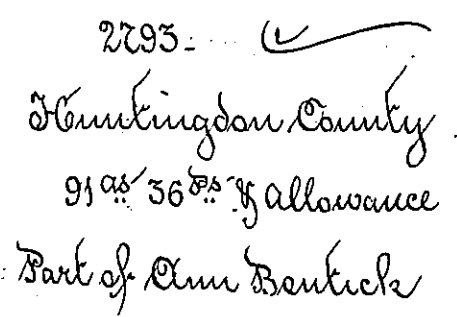 2793.
Huntingdon County
91 as 36 Ps & Allowance
Part of Ann Bentick